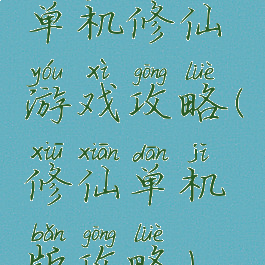 单机修仙
yóu xì gōng lüè
游戏攻略(
xiū xiān dān jī
修仙单机
bǎn gōng lüè
版攻略)